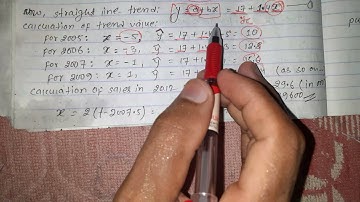 Now, straight line trend: ŷ = a + bx = 17 + 1.4x
yc
calculation of trend value:
For 2005: x = -5, ŷ = 17 + 1.4 5 = (10)
For 2006: x = -3, ŷ = 17 + 1. = 12.8
For 2007: x = -1, ŷ = 17 + 1. = 15.6
For 2009: x = 1, ŷ = 17 (as so on
calculation of sales in 2012 29.6 (in
9600
x = 2(t - 2007.5) =